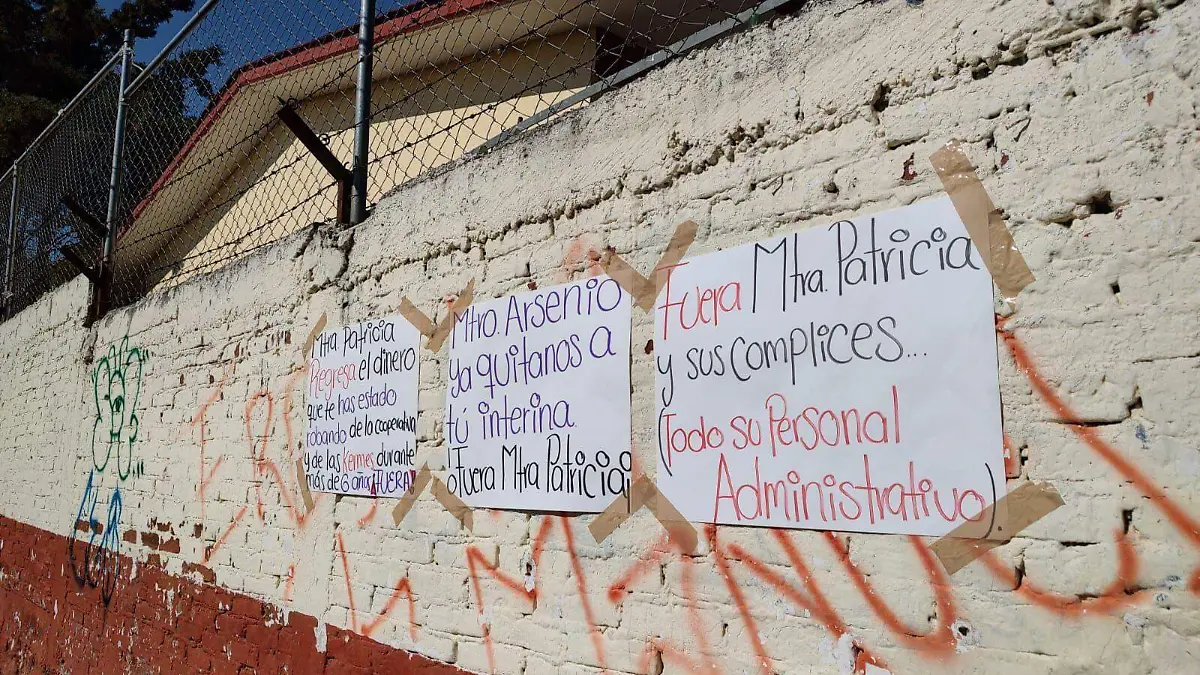 Mtra Patricia
Regresa el dinero
que te has estado
robando de lo cooperativa
y de las Kermes durante
más de 6 años ¡FUERA!
Mtro. Arsenio
ya quitanos a
tú interina.
¡Fuera Mtra Patricia!
Fuera Mtra. Patricia
y sus complices...
(Todo su Personal
Administrativo)